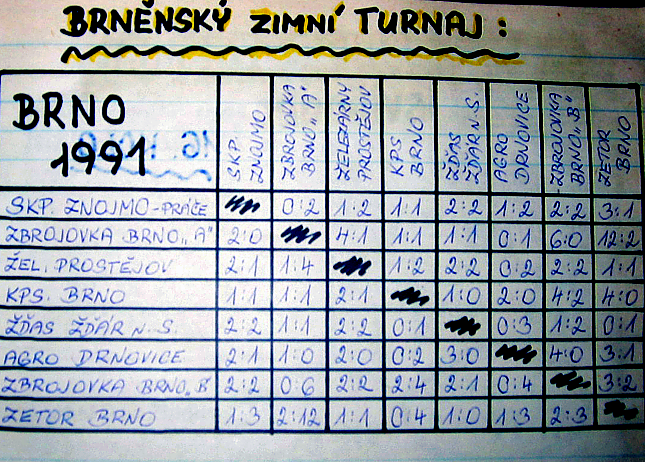 BRNĚNSKÝ ZIMNÍ TURNAJ :
BRNO
1991
SKP. ZNOJMO
ZBROJOVKA BRNO „A"
ŽELEZÁRNY PROSTĚJOV
KPS BRNO
ŽĎAS ŽĎÁR N.S.
AGRO DRNOVICE
ZBROJOVKA BRNO „B"
ZETOR BRNO
SKP. ZNOJMO-PRÁČE 0:2 1:2 1:1 2:2 1:2 2:2 3:1
ZBROJOVKA BRNO„A" 2:0 4:1 1:1 1:1 0:1 6:0 12:2
ŽEL. PROSTĚJOV 2:1 1:4 1:2 2:2 0:2 2:2 1:1
KPS. BRNO 1:1 1:1 2:1 1:0 2:0 4:2 4:0
ŽĎAS ŽĎÁR N.S. 2:2 1:1 2:2 0:1 0:3 1:2 0:1
AGRO DRNOVICE 2:1 1:0 2:0 0:2 3:0 4:0 3:1
ZBROJOVKA BRNO„B" 2:2 0:6 2:2 2:4 2:1 0:4 3:2
ZETOR BRNO 1:3 2:12 1:1 0:4 1:0 1:3 2:3